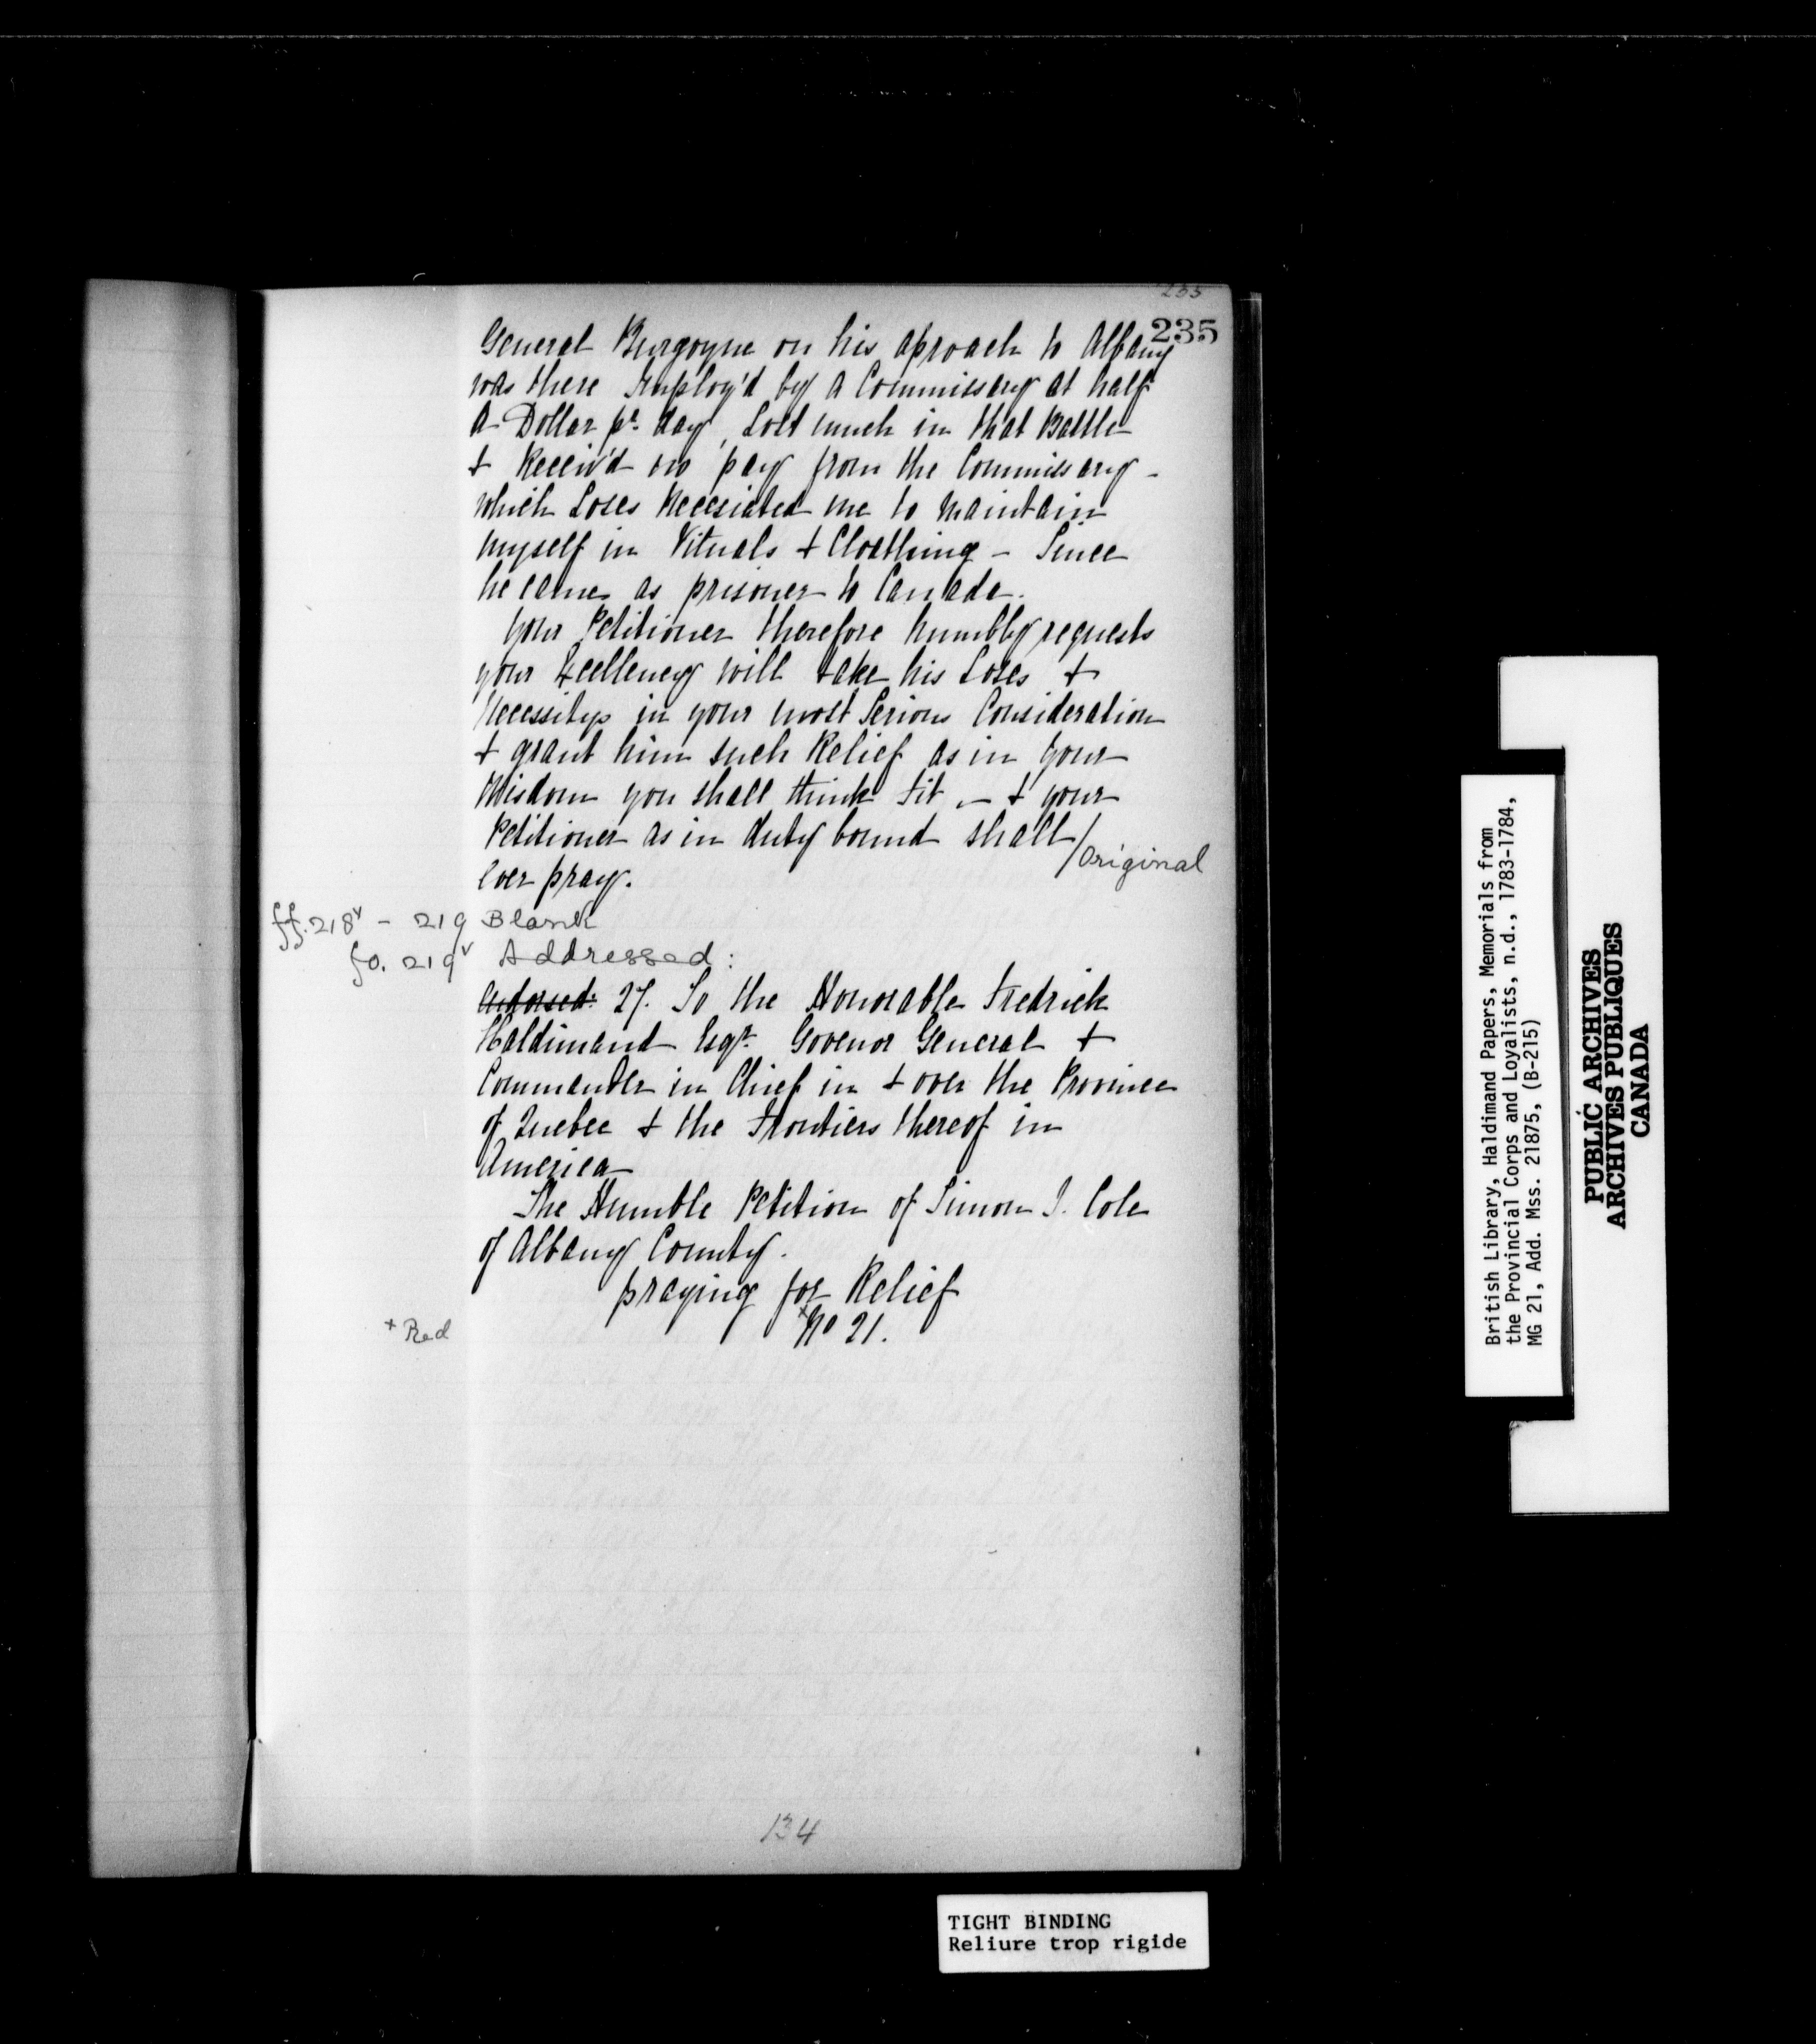 235
235
General Burgoyne on his aproach to Albany
was there Imploy'd by a Commissary at half
a Dollar pr. day, Lost much in that Battle
+ Receiv'd no pay from the Commissary -
which Loses Necesiated me to maintain
myself in Vituals + Cloathing - Since
he came as prisoner to Canada.
your Petitioner therefore humbly requests
your Excellency will take his Loses +
Necessitys in your most Serious Consideration
+ grant him such Relief as in your
Wisdom you shall think fit, - + your
Petitioner as in duty bound shall / Original
ever pray.
ff. 218v - 219 Blank
fo. 219v Addressed:
Endorsed: 27. To the Honorable Fredrick
Haldimand Esqr. Govenor General +
Commander in Chief in + over the Province
of Quebec + the Frontiers thereof in
America
The Humble Petition of Simon J. Cole
of Albany County.
praying for Relief
x No 21.
x Red
134
TIGHT BINDING
Reliure trop rigide
British Library, Haldimand Papers, Memorials from
the Provincial Corps and Loyalists, n.d., 1783-1784,
MG 21, Add. Mss. 21875, (B-215)
PUBLIC ARCHIVES
ARCHIVES PUBLIQUES
CANADA